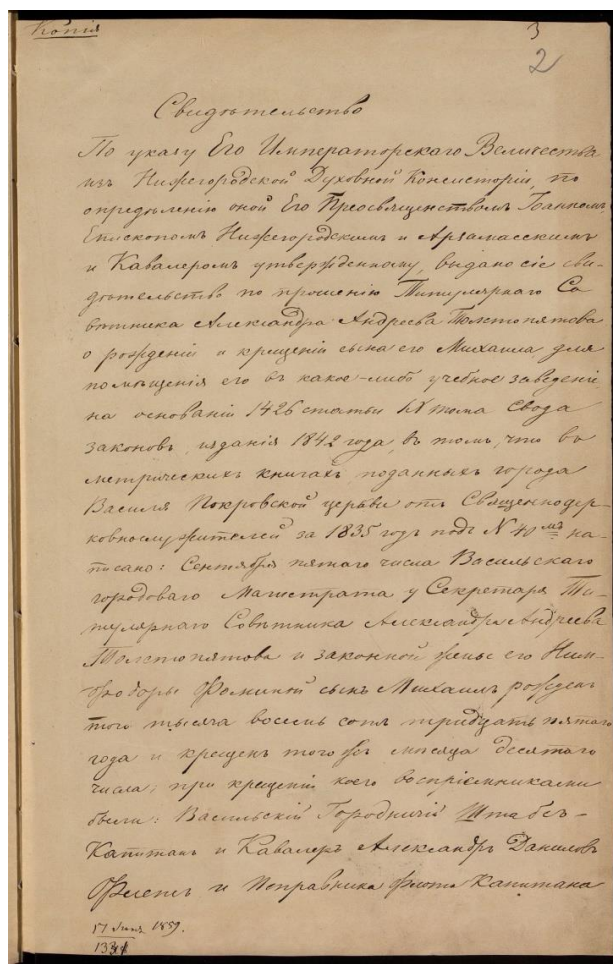 Копія
3
2
Свидѣтельство
По указу Его Императорскаго Величества
изъ Нижегородской Духовной Консисторіи, по
опредѣленію оной Его Преосвященствомъ Іоанномъ
Епископомъ Нижегородскимъ и Арзамасскимъ
и Кавалеромъ утвержденному, выдано сіе сви-
дѣтельство по прошенію Титулярнаго Со-
вѣтника Александра Андреева Толстопятова
о рожденіи и крещеніи сына его Михаила для
помѣщенія его въ какое-либо учебное заведеніе,
на основаніи 1426 статьи IX тома Свода
законовъ, изданія 1842 года, въ томъ, что въ
метрическихъ книгахъ, поданныхъ города
Василя Покровской церкви отъ Священноцер-
ковнослужителей за 1835 годъ подъ N 40мъ на-
писано: Сентября пятаго числа Васильскаго
городоваго Магистрата у Секретаря Ти-
тулярнаго Совѣтника Александра Андреева
Толстопятова и законной жены его Ним-
фодоры Фоминой сынъ Михаилъ рожденъ
того тысяча восемь сотъ тридцать пятаго
года и крещенъ того же мѣсяца десятаго
числа; при крещеніи коего воспріемниками
были: Васильскій Городничій Штабсъ-
Капитанъ и Кавалеръ Александръ Даниловъ
и Исправника флота Капитана
1859.